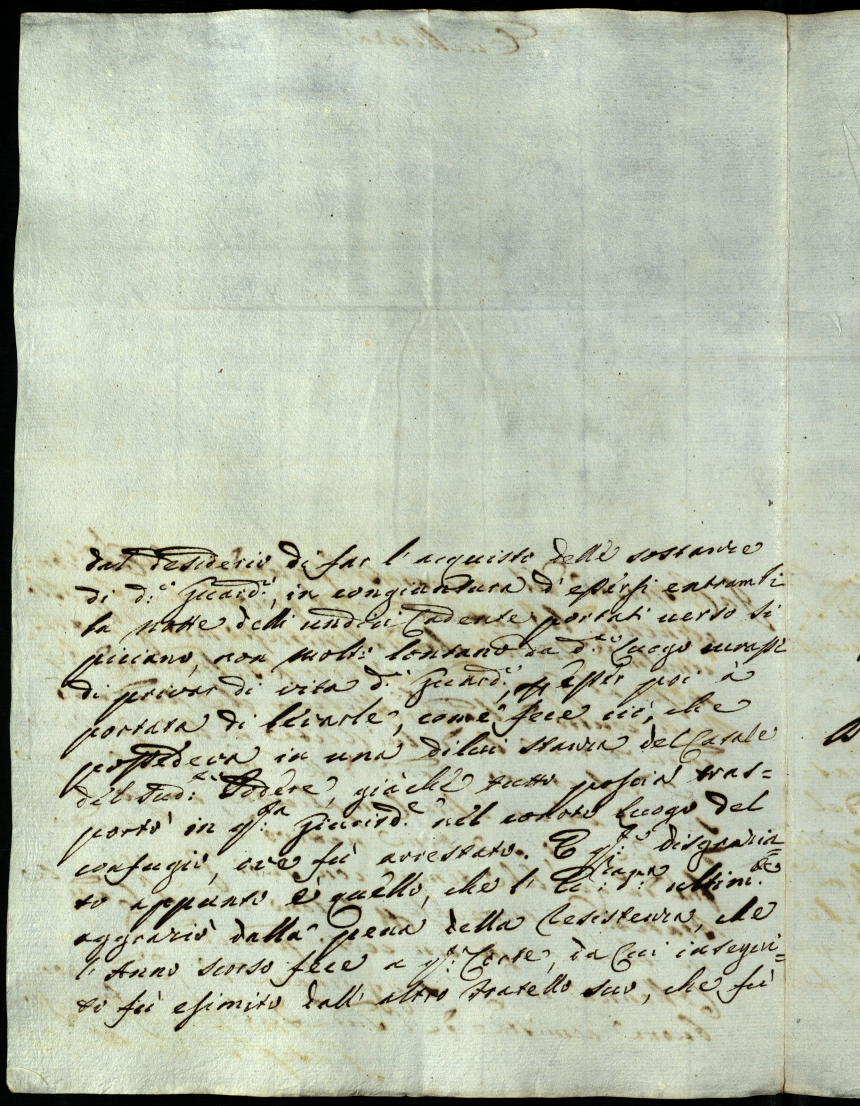 dal desiderio di far l'acquisto delle sostanze
di d.º Guard.º, in congiuntura d'essersi entrambi
la notte delli undeci Cadente portati verso Si
piciano, non molto lontano da d.º Luogo
di privar di vita d.º Guard.º, p esser poi à
portata di levarle, come fece ciò, che
possedeva in una di lui stanza del Casale
del sud.º Podere, giàche tutto poscia tras=
portò in q.ta Giurisd.e nel luogo del
confugio, ove fù arrestato. E q.to disgrazia=
to appunto è quello, che l' ultim.te
aggraziò dalla pena della Resistenza, che
l'Anno scorso fece a q.ta Corte, da Cui insegui=
to fù esimito dall'altro fratello suo, che fù